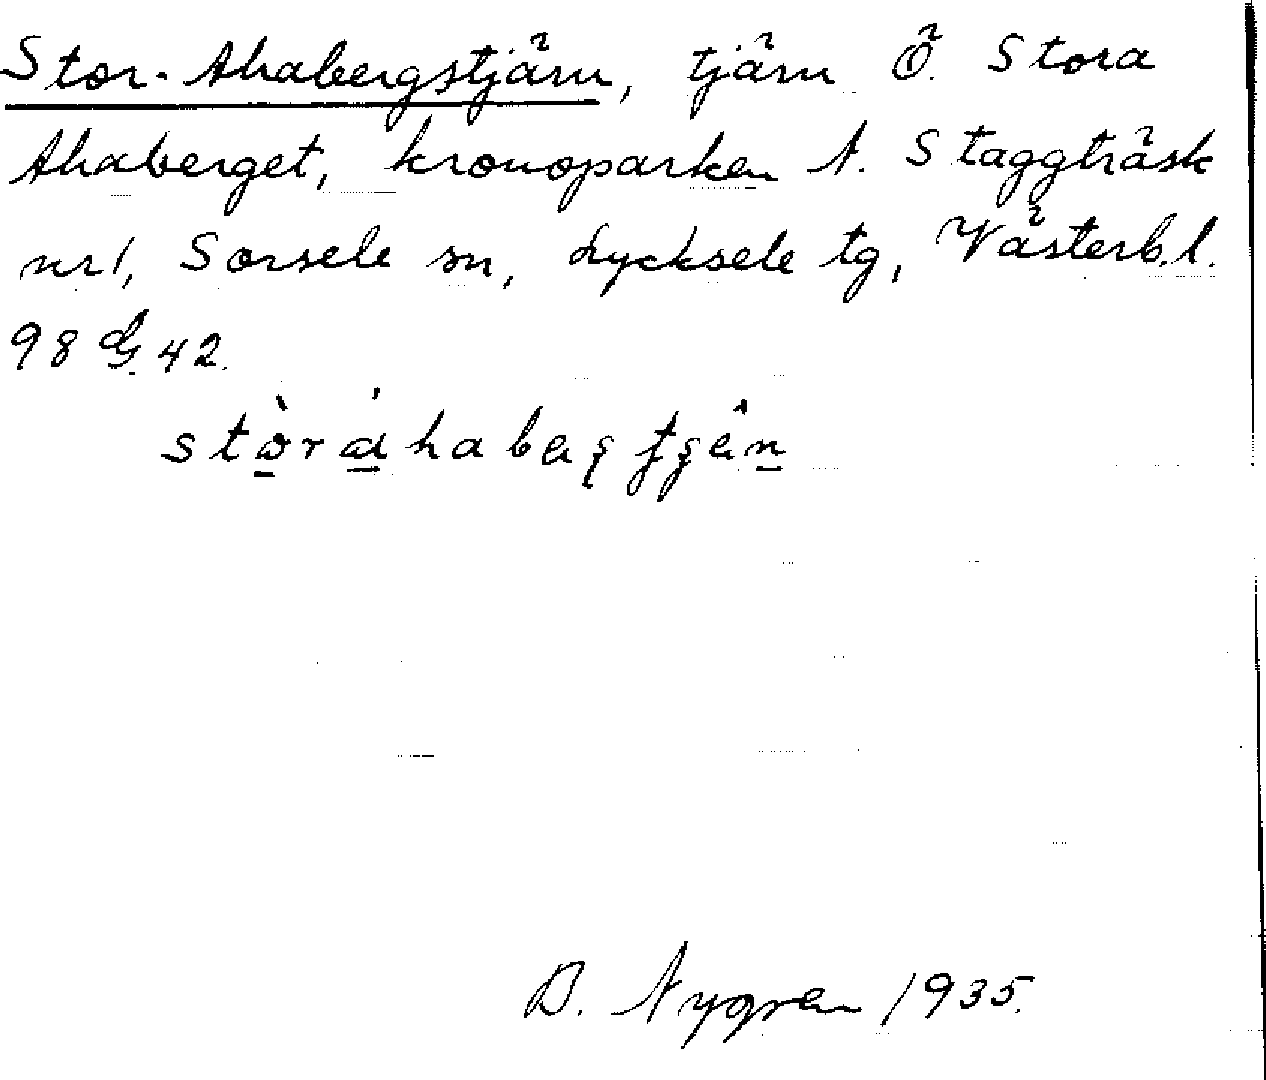 Stor-Ahabergstjärn, tjärn Ö. Stora
Ahaberget, kronoparken N. Staggträsk
nr 1, Sorsele sn, Lycksele tg, Västerb.l.
98 G 42.
B. Nygren 1935.